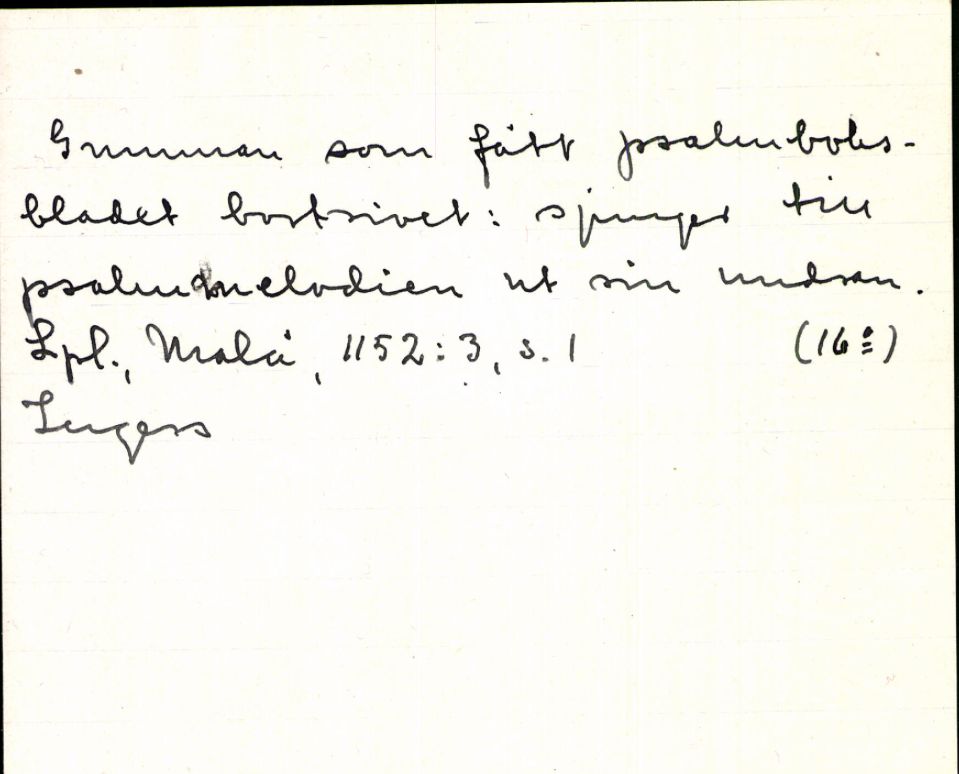 Gumman som fått psalmboks-
bladet bortrivet: sjunger till
psalmmelodien ut sin undran.
Lpl., Malå, 1152:3, s. 1 (16º)